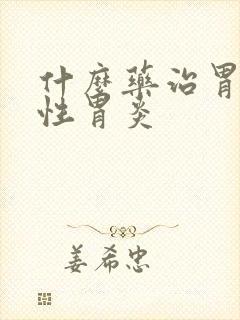 什麼藥治胃
性胃炎
姜希忠